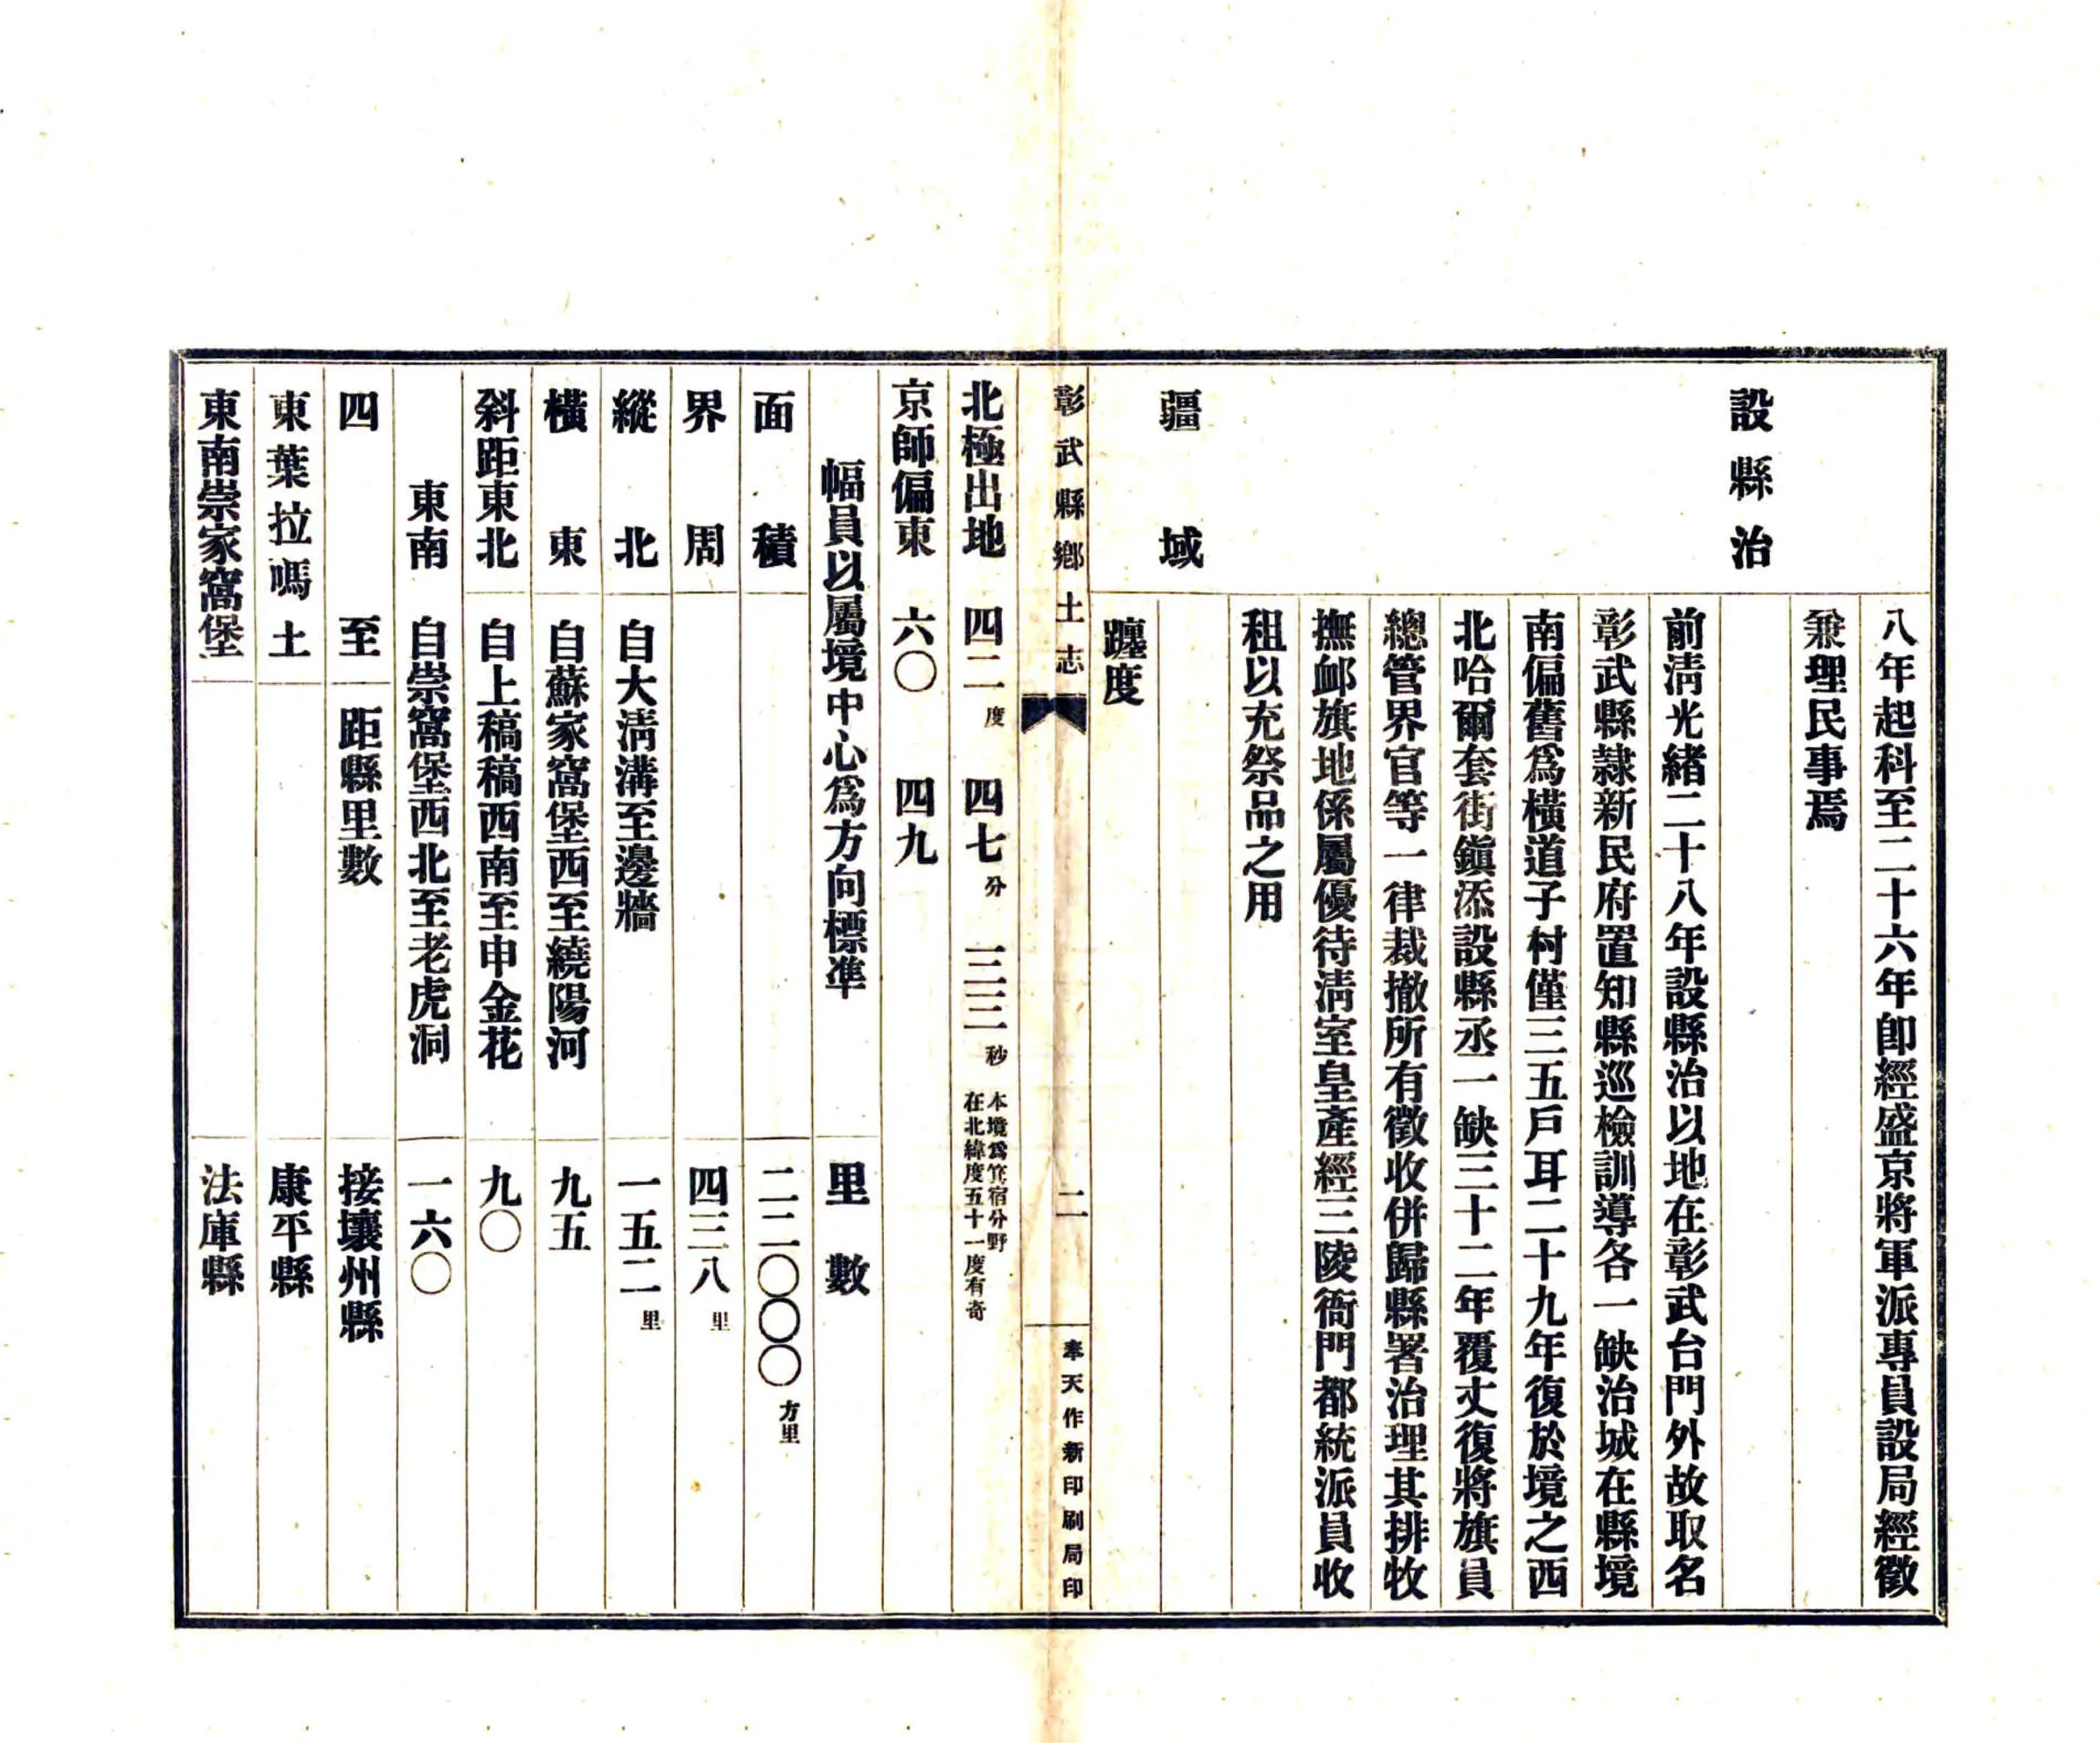 八年起科至二十六年卽經盛京將軍派專員設局經徵
兼理民事焉
設縣治
前淸光緒二十八年設縣治以地在彰武台門外故取名
彰武縣隷新民府置知縣巡檢訓導各一缺治城在縣境
南偏舊爲橫道子村僅三五戶耳二十九年復於境之西
北哈爾套街鎭添設縣丞一缺三十二年覆丈復將旗員
總管界官等一律裁撤所有徵收併歸縣署治理其排牧
撫卹旗地係屬優待淸室皇產經三陵衙門都統派員收
租以充祭品之用
疆域
躔度
彰武縣鄕土志
二
奉天作新印刷局印
北極出地 四二度 四七分 三三秒 本境爲箕宿分野
在北緯度五十一度有奇
京師偏東 六〇 四九
幅員以屬境中心爲方向標準 里數
面積 二二〇〇〇方里
界周 四三八里
縱北 自大淸溝至邊牆 一五二里
橫東 自蘇家窩堡西至繞陽河 九五
斜距東北 自上稿稿西南至申金花 九〇
東南 自崇窩堡西北至老虎洞 一六〇
四至 距縣里數 接壤州縣
東葉拉嗎土 康平縣
東南崇家窩堡 法庫縣